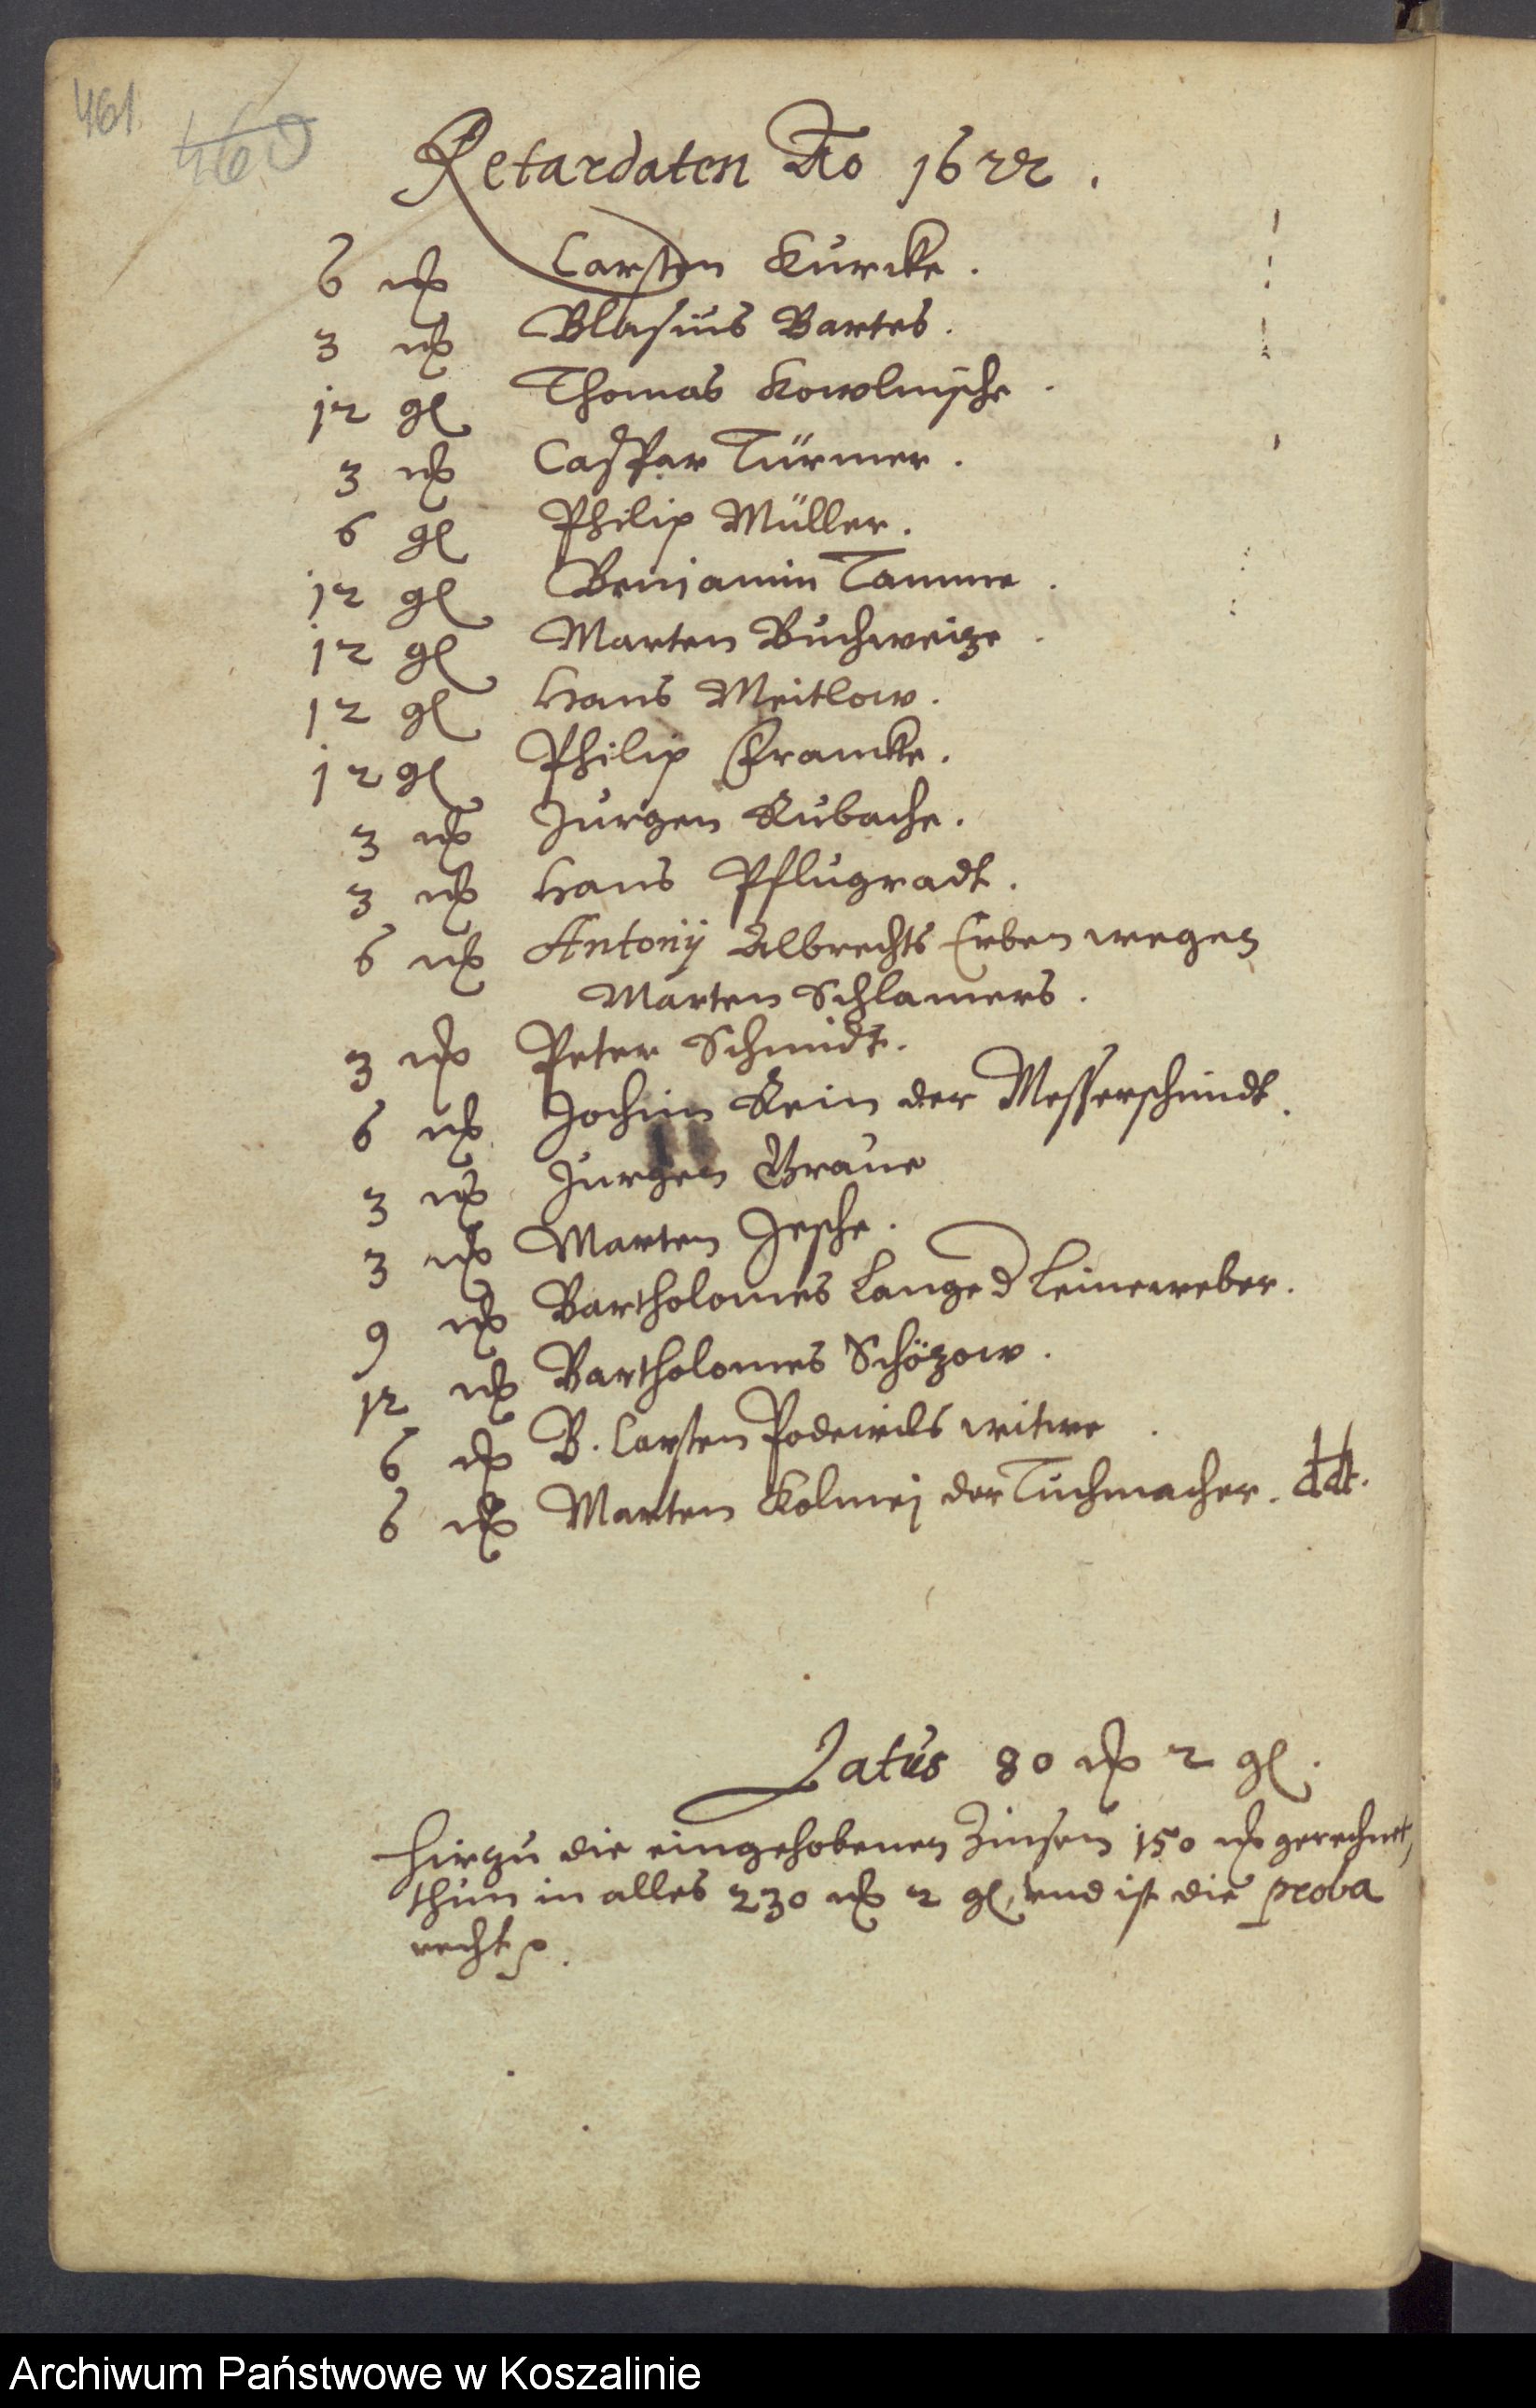 461.
460
Retardaten Ao 1622.
6 mk Carsten Kurcke.
3 mk Blasius Bartes.
12 gl Thomas Kowolnische.
3 mk Caspar Türmer.
6 gl Philip Müller.
12 gl Benjamin Tamme.
12 gl Marten Buchweitze.
12 gl Hans Meitlow.
12 gl Philip Francke.
3 mk Jurgen Kubache.
3 mk Hans Pflugradt.
6 mk Antonij Albrechts Erben wegen
Marten Schlamers.
3 mk Peter Schmidt.
6 mk Jochim Rein der Messerschmidt.
3 mk Jurgen Braune
3 mk Marten Jesche.
9 mk Bartholomes Lange d Leineweber.
12 mk Bartholomes Schözow.
6 mk B. Carsten Podewils witwe.
6 mk Marten Kolmej der Tuchmacher. ddt.
Latus 80 mk 2 gl.
Hirzu die eingehobenen Zinsen 150 mk gerechnet,
thun in alles 230 mk 2 gl, und ist die proba
recht.
Archiwum Państwowe w Koszalinie